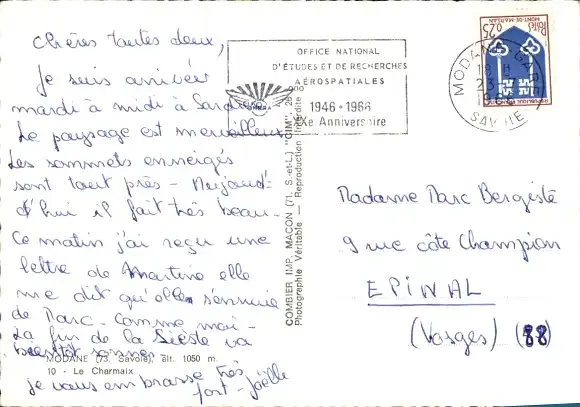 Chères toutes deux,
Je suis arrivée
mardi à midi à Sardières
Le paysage est merveilleux
Les sommets enneigés
sont tout près - Aujourd'-
d'hui il fait très beau -
Ce matin j'ai reçu une
lettre de Martine elle
me dit qu'elle s'ennuie
de Marc - comme moi -
La fin de la Sieste va
bientôt sonner
je vous embrasse très
fort - Joëlle
MODANE (73. Savoie), alt. 1050 m.
10 - Le Charmaix
COMBIER IMP. MACON (71. S.-et-L.) "CIM"
Photographie Véritable — Reproduction Interdite
OFFICE NATIONAL
D'ÉTUDES ET DE RECHERCHES
AÉROSPATIALES
1946 - 1966
XXe Anniversaire
ONERA
MODANE GARE
18 H
23
SAVOIE
0,25
POSTES
MONT-DE-MARSAN
REPUBLIQUE FRANCAISE
Madame Marc Bergiste
9 rue côte Champion
EPINAL
(Vosges) (88)